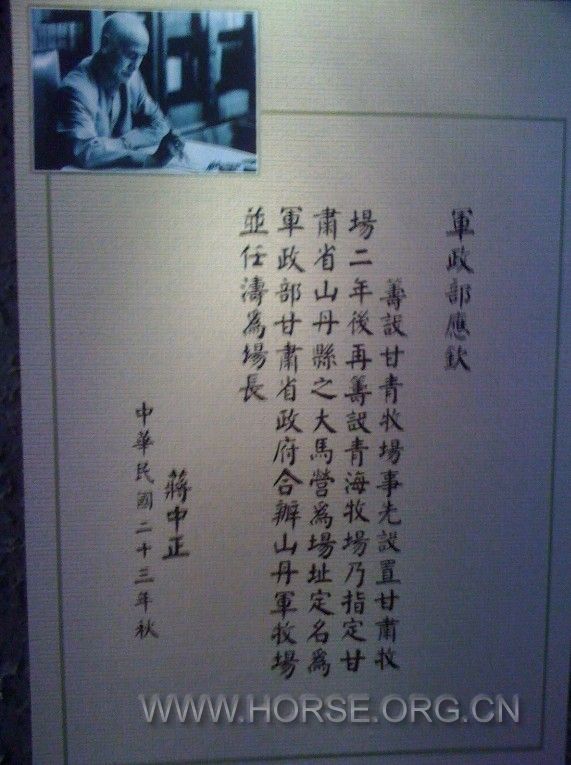 軍政部應欽
籌設甘青牧場事先設置甘肅牧
場二年後再籌設青海牧場乃指定甘
肅省山丹縣之大馬營為場址定名為
軍政部甘肅省政府合辦山丹軍牧場
並任濤為場長
蔣中正
中華民國二十三年秋
WWW.HORSE.ORG.CN